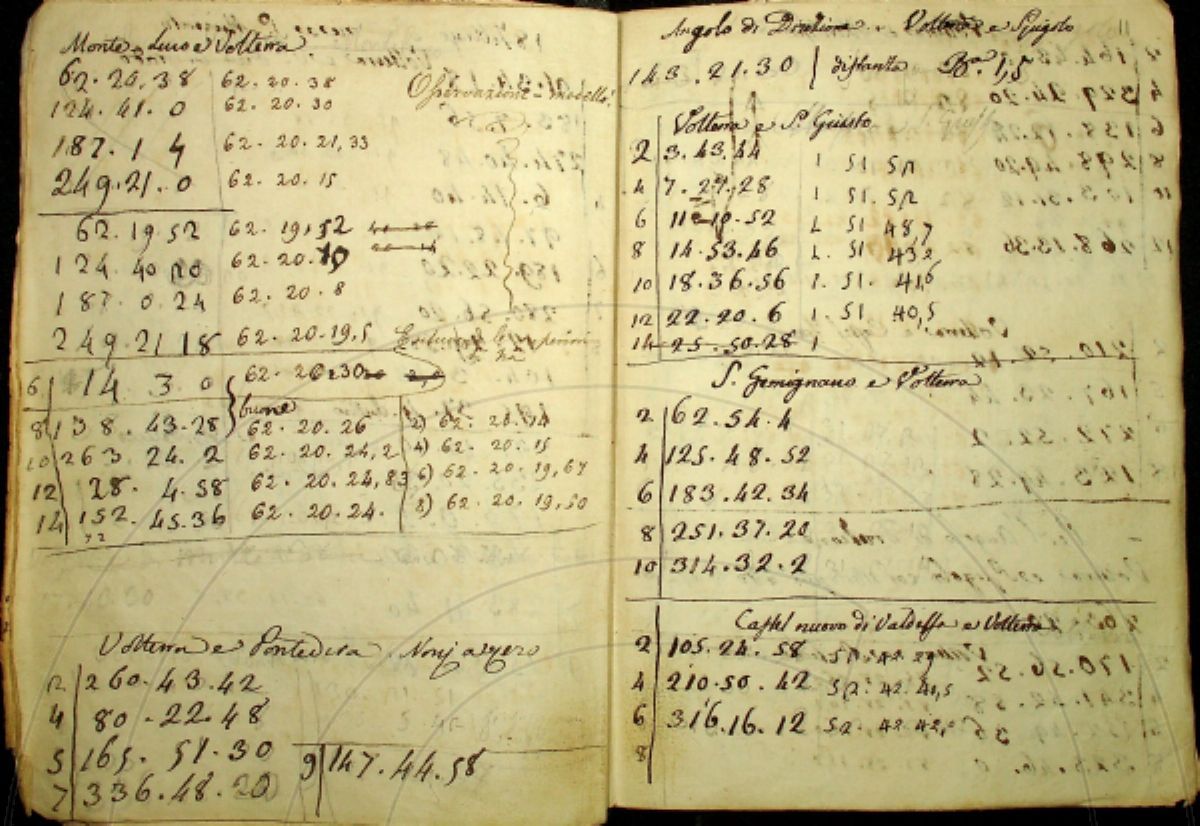 Monte Luso e Volterra
62. 20. 38 62. 20. 38
124. 41. 0 62. 20. 30
187. 1 4 62. 20. 21, 33
249. 21. 0 62. 20. 15
62. 19. 52 62. 19, 52
124. 40 20 62. 20. 10
187. 0. 24 62. 20. 8
249. 21 18 62. 20. 19,5
6 14 3. 0 62. 20. 30
buone
8 138. 43. 28 62. 20. 26 2) 62. 20. 14
10 263. 24. 2 62. 20. 24, 2 4) 62. 20. 15
12 28. 4. 58 62. 20. 24, 83 6) 62. 20. 19, 67
14 152. 45. 36 62. 20. 24. 8) 62. 20. 19, 50
72
Volterra e Pontedera. Nonj a zero
2 260. 43. 42
4 80. 22. 48
5 165. 51. 30 9 147. 44. 58
7 336. 48. 20
Angolo di e Spigolo
143. 21. 30 distanza Ba. 1,5
Volterra e S. Giusto
2 3. 43. 44 1. 51. 52
4 7. 27. 28 1. 51. 52
6 11. 10. 52 1. 51 48,7
8 14. 53. 46 1. 51 43,2
10 18. 36. 56 1. 51. 41,6
12 22. 20. 6 1. 51 40,5
14 25. 50. 28 1
S. Gemignano e Volterra
2 62. 54. 4
4 125. 48. 52
6 183. 42. 34
8 251. 37. 20
10 314. 32. 2
Castel nuovo di Valdelsa e Volterra
2 105. 24. 58 52 42 29
4 210. 50. 42 52. 42. 41,5
6 316. 16. 12 52. 42 42,
8